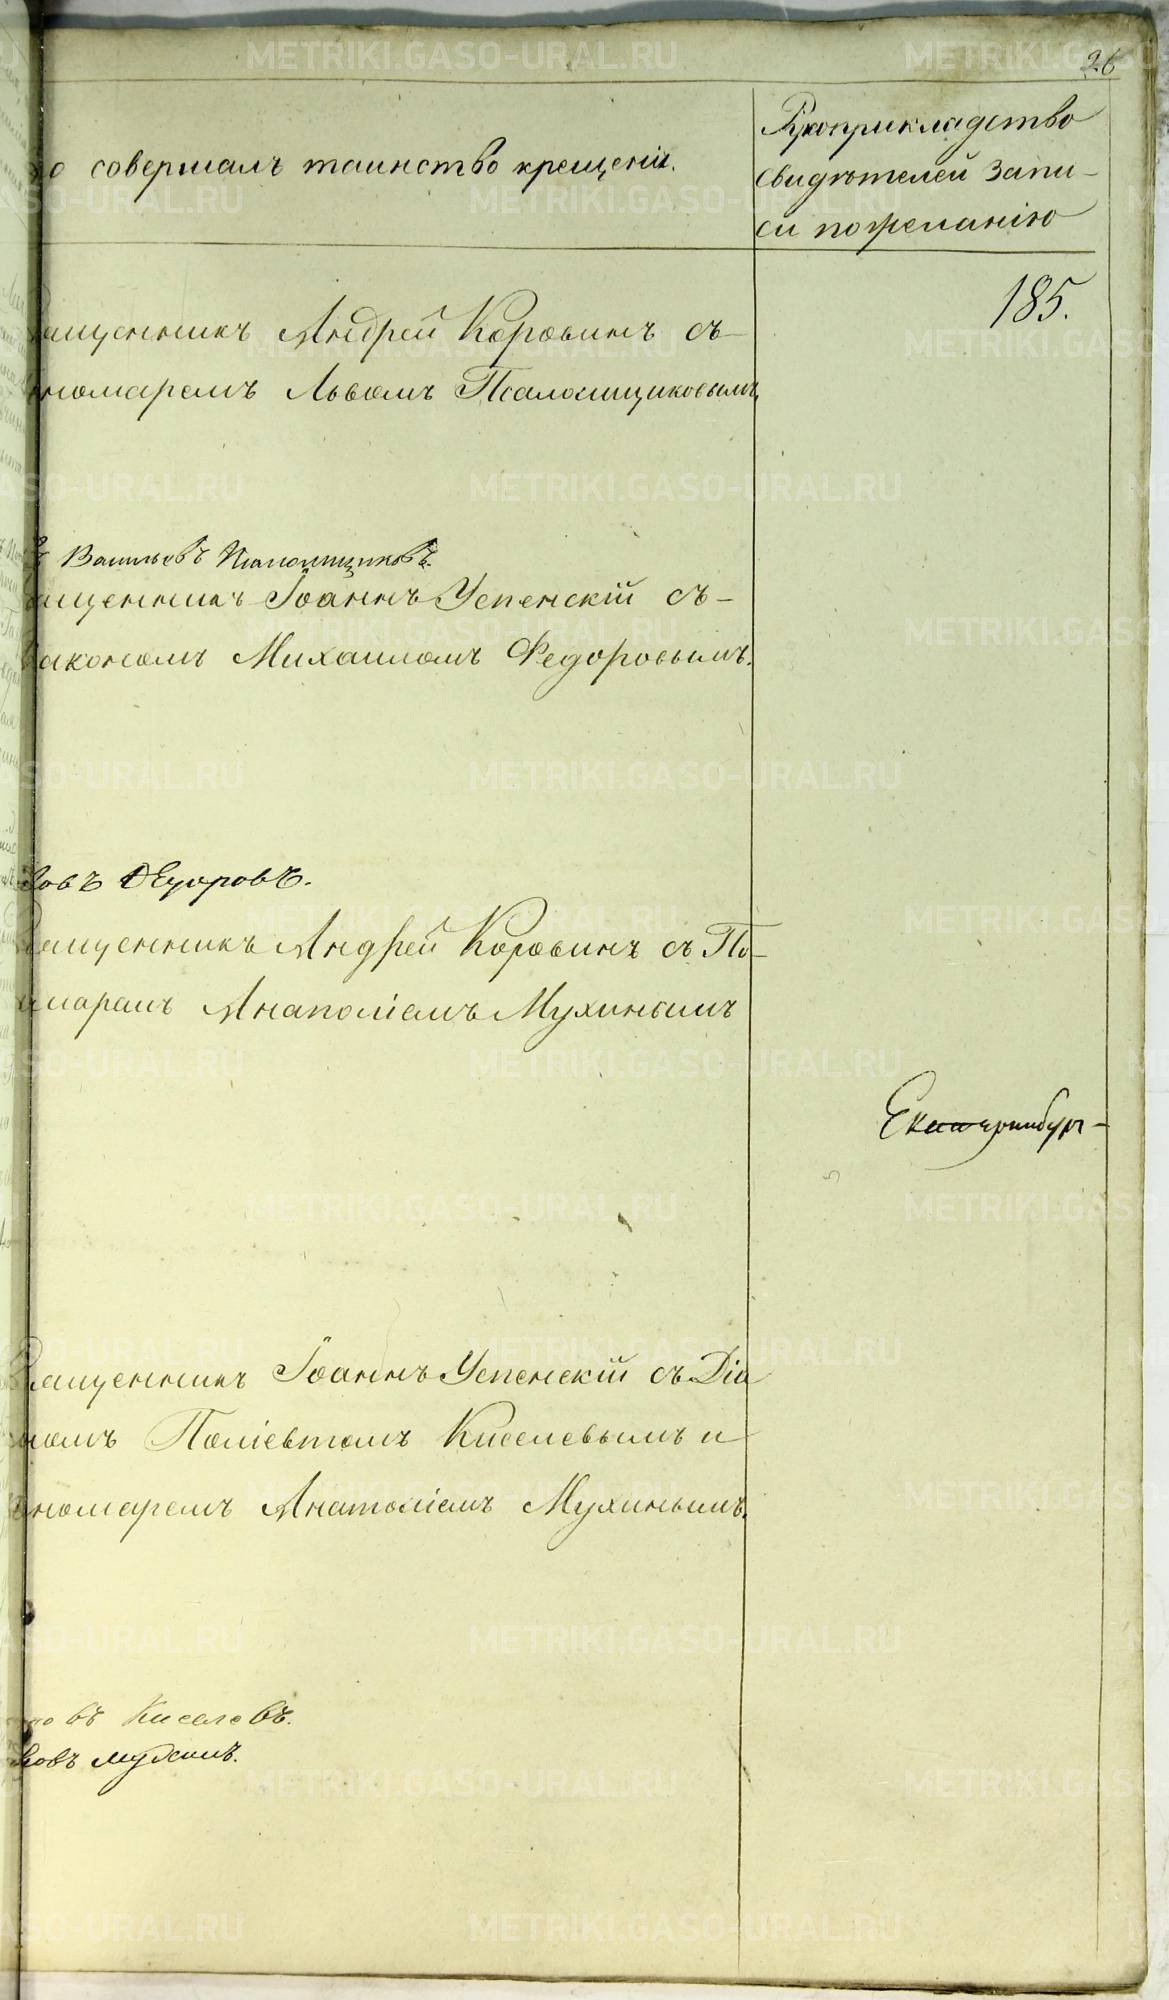 26
то совершалъ таинство крещенія.
Рукоприкладство
свидѣтелей запи-
си по желанію
185.
Священникъ Андрей Коровинъ съ
Пономаремъ Львомъ Псаломщиковымъ
Васильевъ Псаломщиковъ.
Священникъ Іоаннъ Успенскій съ-
Діакономъ Михаиломъ Федоровымъ.
ловъ Ѳедоровъ.
Священникъ Андрей Коровинъ съ По-
номаремъ Анатоліемъ Мухинымъ
Екатеринбург-
Священникъ Іоаннъ Успенскій съ Діа
номъ Поліевтомъ Киселевымъ и
Пономаремъ Анатоліемъ Мухинымъ.
въ Киселевъ.
ковъ Мухинъ.
METRIKI.GASO-URAL.RU